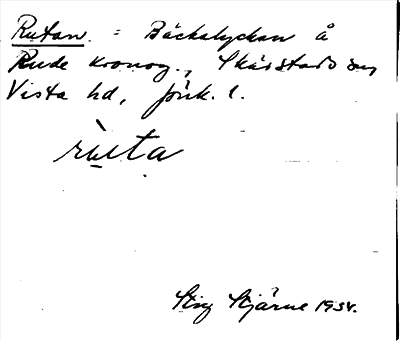 Rutan. = Bäckalyckan å
Rude kronog., Skärstads sn,
Vista hd, Jönk. l.
rùta
Stig Stjärne 1934.